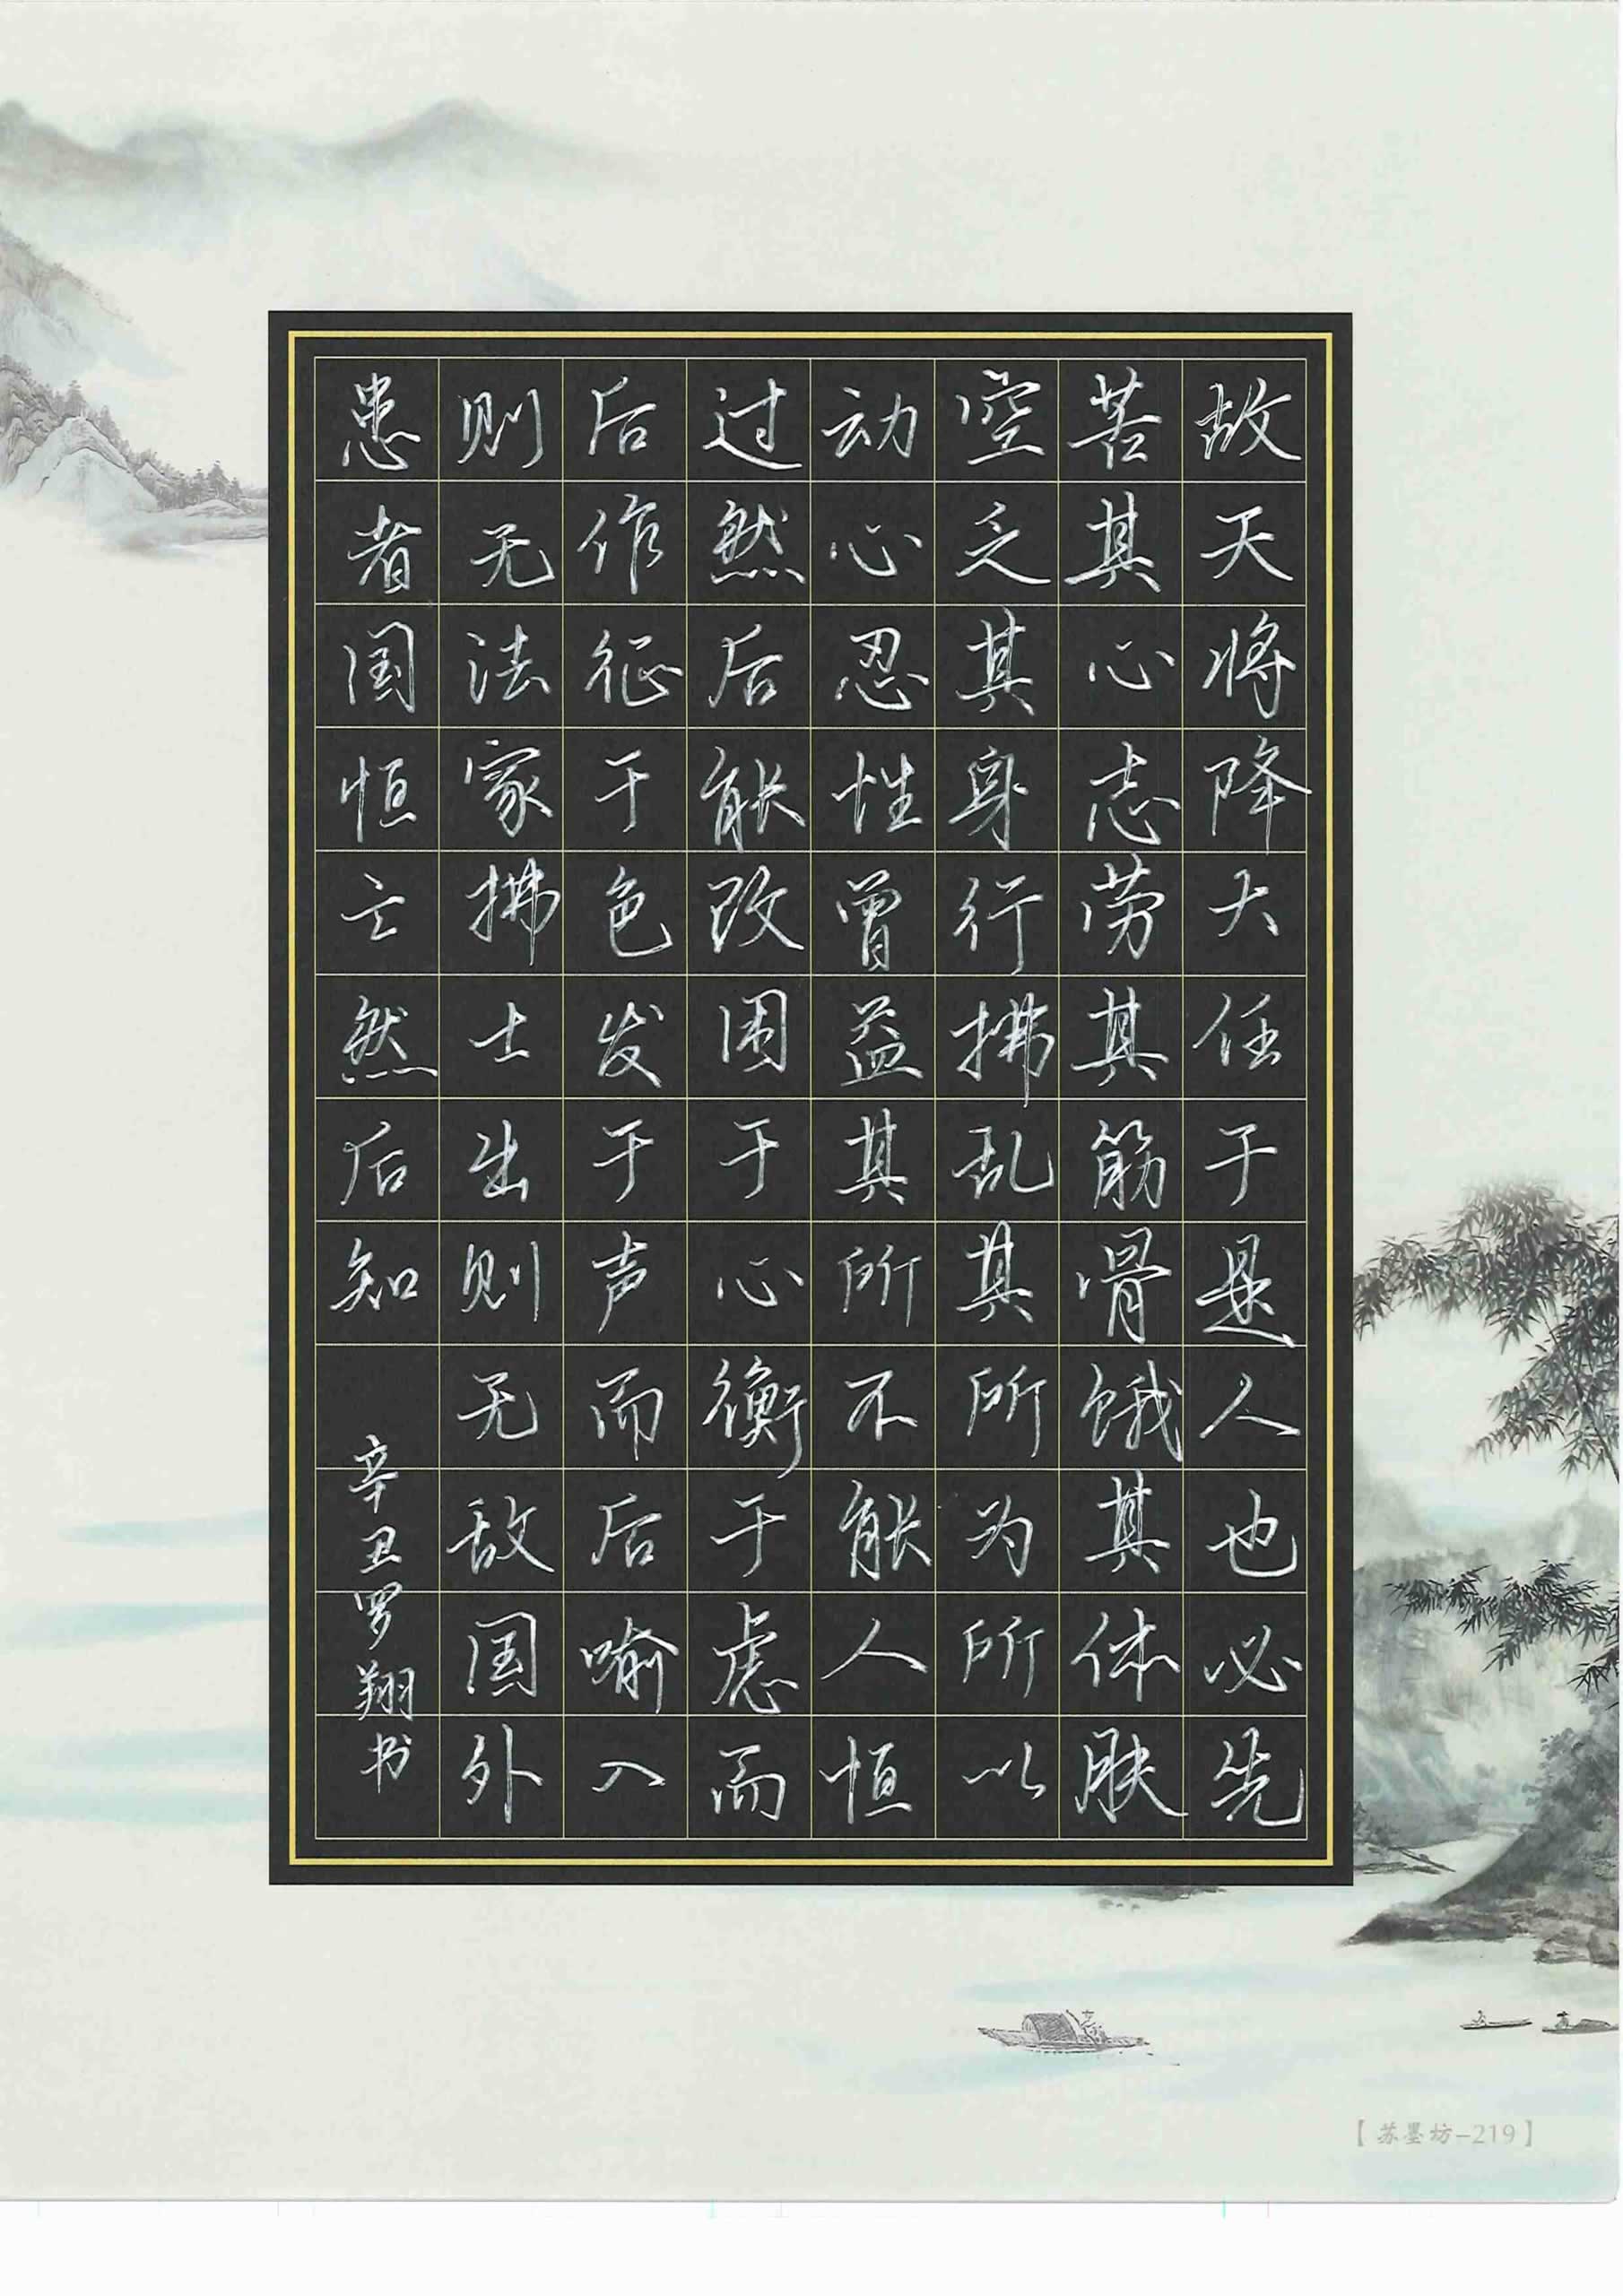 故天将降大任于是人也必先
苦其心志劳其筋骨饿其体肤
空乏其身行拂乱其所为所以
动心忍性曾益其所不能人恒
过然后能改困于心衡于虑而
后作征于色发于声而后喻入
则无法家拂士出则无敌国外
患者国恒亡然后知
辛丑罗翔书
【苏墨坊-219】